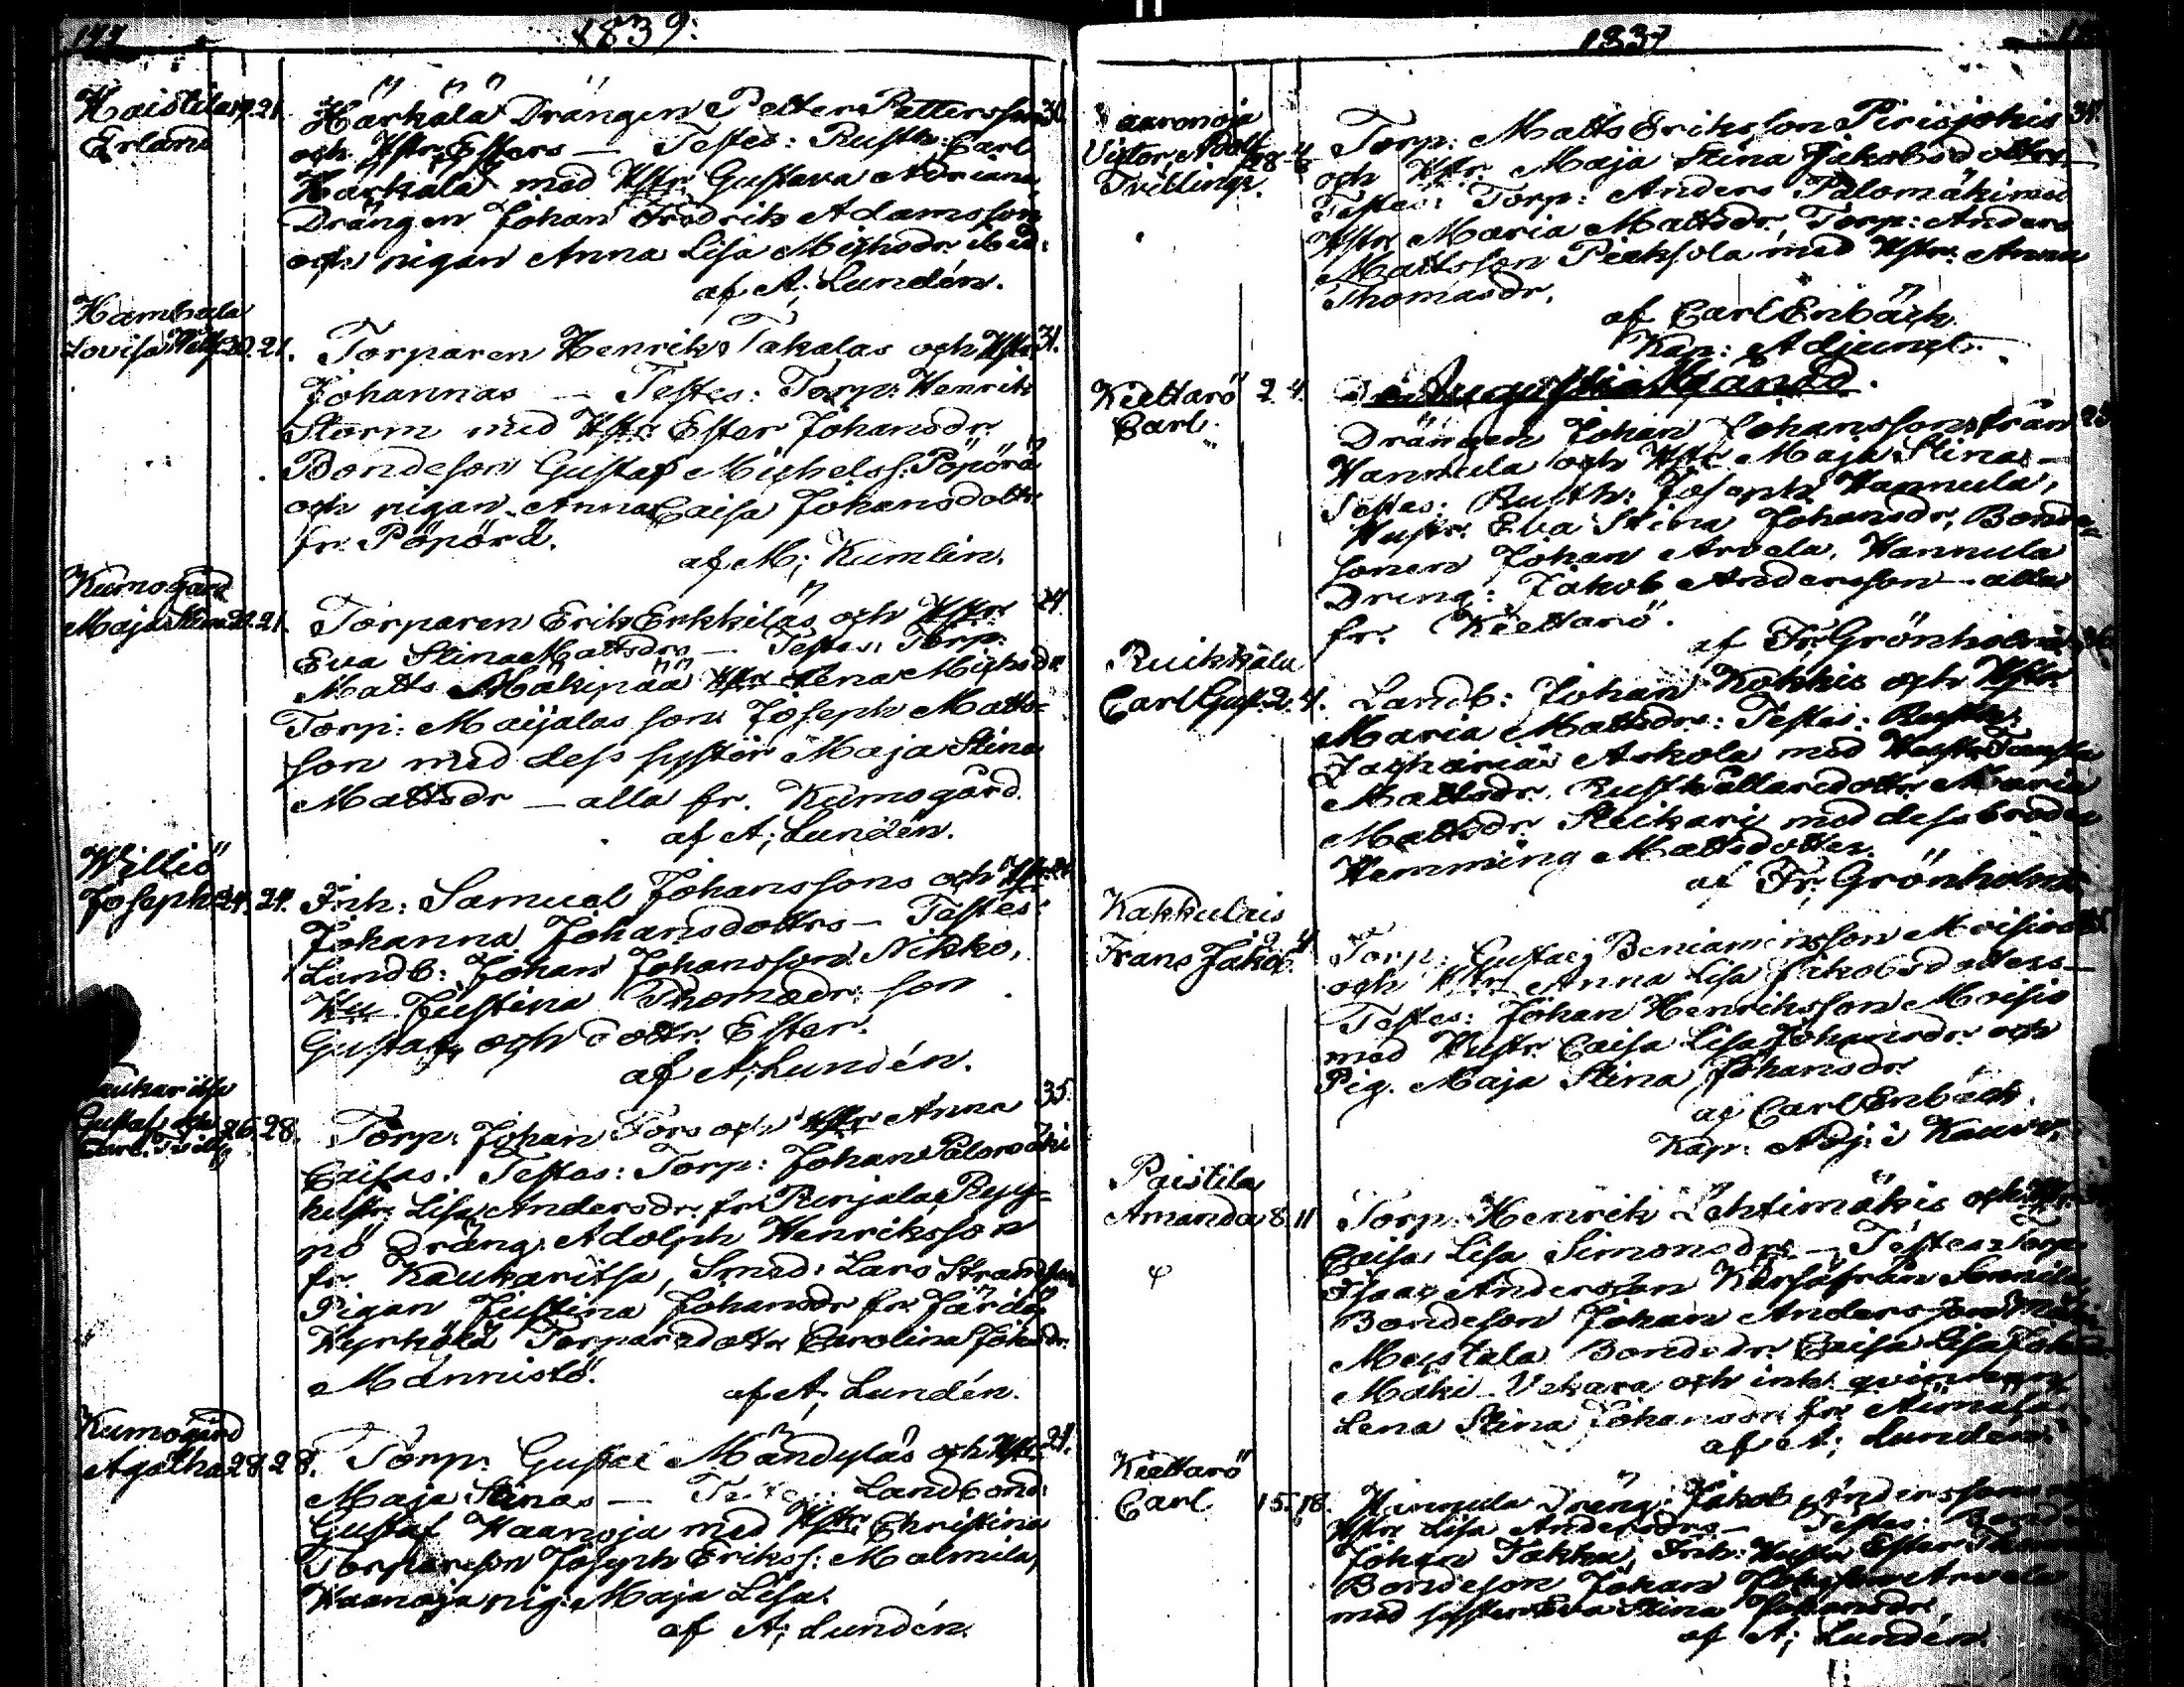 144 1839.
Haistila 19. 21. Härkälä Drängen Petter Pettersson 30.
Erland och Hstr Esters — Testes: Rusth: Carl
Härkälä med Hstr Gustava Adriana,
Drängen Johan Fredrik Adamsson
och pigan Anna Lisa Michsdr
af A; Lundén.
Hambula
Lovisa Wilh. 20. 21. Torparen Henrik Takalas och Hstr 31.
Johannas — Testes: Torp: Henrik
Storm med Hstr Ester Johansdr.
Bondeson Gustaf Michelss. Pöpörä
och pigan Anna Caisa Johansdottr
fr. Pöpörä.
af M; Kumlin.
Kumogård
Maja Stina 20. 21. Torparen Erik Erkkiläs och Hstr 24.
Eva Stina Mattsdrs — Testes: Torp:
Matts Mäkipää Hstr Lena Michsdr.
Torp: Maijalas son Joseph Matts-
son med dess syster Maja Stina
Mattsdr — alla fr. Kumogård.
af A; Lundén.
Williö
Joseph 24. 24. Inh: Samuel Johanssons och Hstr
Johanna Johansdottrs — Testes:
Landb: Johan Johansson Nikko,
Hu. Justina Thomasdr. son
Gustaf, och dottr. Ester.
af A; Lundén.
Kaukaritsa
Gustaf och 26. 28. Torp: Johan Fors och Hstr Anna 35.
Carl. Tvill. Caisas. Testes: Torp: Johan Palomäki
hustr. Lisa Andersdr. fr. Punjala, Pyy-
pö Dräng. Adolph Henriksson
fr. Kaukaritsa, Smed: Lars Strandson
Pigan Justina Johansdr fr. Järilä
Kyrkölä Torparedottr Carolina Johsdr.
Männistö.
af A; Lundén.
Kumogård
Agatha 28. 28. Torp: Gustaf Mändyläs och Hstr 24.
Maja Stinas — Testes: Landbond:
Gustaf Haanoja med Hstr Christina
Torpareson Joseph Erikss: Malmila,
Haanoja pig. Maja Lisa.
af A; Lundén.
1839
Haaronoja Torp: Matts Eriksson Pirisjokis 38.
Victor, Adolf 28. 4. och Hstr Maja Stina Jakobsdottrs —
Tvillingr. Testes: Torp: Anders Palomäki med
Hstr Maria Mattsdr, Torp: Anders
Mattsson Pieksola med Hstr: Anna
Thomasdr.
af Carl Enbäck
Kap: Adjunct.
Kiettarö 2. 4.
Carl. Drängen Johan Johanssons från 25
Hannula och Hstr Maja Stinas —
Testes: Rusth: Joseph Hannula,
Hustr. Eva Stina Johansdr, Bonde-
sonen Johan Arvela, Hannula
Dreng: Jakob Andersson — alla
fr. Kiettarö.
af Fr. Grönholm
Ruikkala
Carl Gust. 2. 4. Landb: Johan Kokkis och Hstr
Maria Mattsdrs: Testes: Rusth:
Zacharias Askola med Hustr
Mattsdr. Rusthållaredottr Maria
Mattsdr. Stickari med dess broder
Hemming Mattsdotter.
af Fr. Grönholm
Kakkulais
Frans Jakob 2 4. Torp: Gustaf Beniaminsson Moisios
och Hstr Anna Lisa Jakobsdotters —
Testes: Johan Henriksson Moisio
med Hustr. Caisa Lisa Johansdr. och
Pig. Maja Stina Johansdr
af Carl Enbäck.
Kap: Adj: i
Paistila
Amanda 8. 11 Torp: Henrik Lehtimäkis och Hstr
Caisa Lisa Simonsdrs — Testes: Torp:
Isaac Andersson från Sonnila,
Bondeson Johan Andersson
Mustala Bondedr. Caisa Lisa
Mäki Uckara och inh. qvinnan
Lena Stina Johansdr fr.
af A; Lundén.
Kiettarö
Carl 15. 18. Hannula Dräng: Jakob Anderssons
Hstr Lisa Andersdrs — Testes:
Johan Jokka, Inh: Hustr Ester
Bondeson Johan Johansson Arvela
med systern Eva Stina Johansdr.
af A; Lundén.